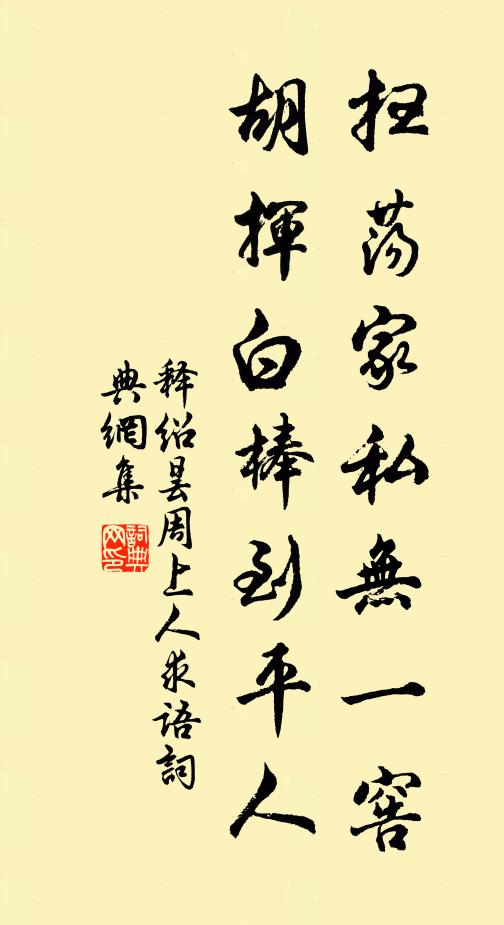 扫荡家私無一窖
胡揮白棒到平人
释绍昙周上人求语詞
典網集
詞典
网印